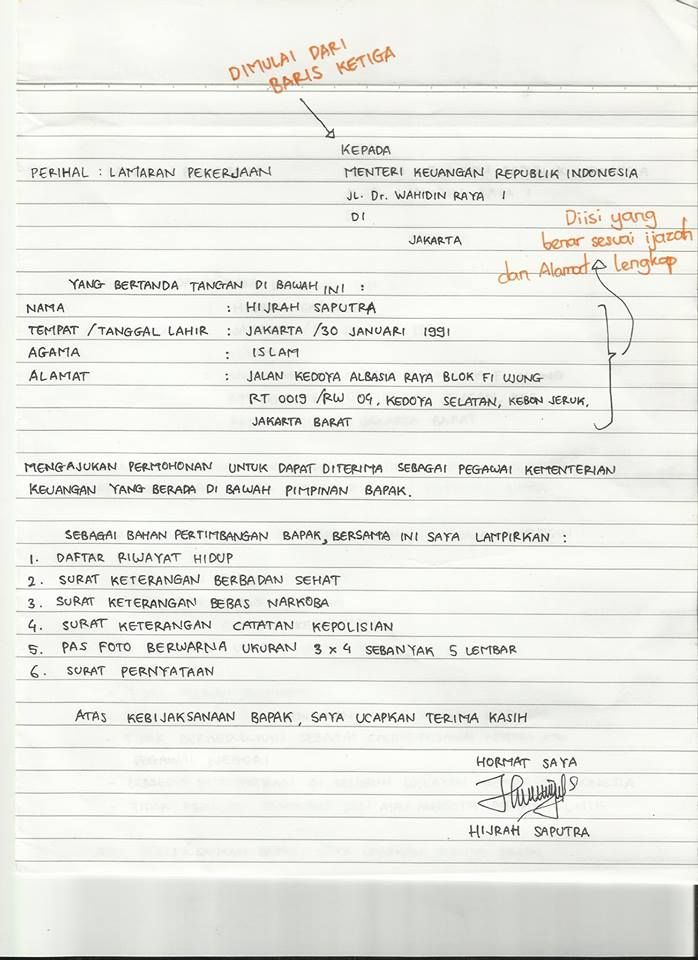 DIMULAI DARI
BARIS KETIGA
KEPADA
PERIHAL : LAMARAN PEKERJAAN MENTERI KEUANGAN REPUBLIK INDONESIA
JL. Dr. WAHIDIN RAYA 1
DI
JAKARTA
Diisi yang
benar sesuai ijazah
dan Alamat lengkap
YANG BERTANDA TANGAN DI BAWAH INI :
NAMA : HIJRAH SAPUTRA
TEMPAT / TANGGAL LAHIR : JAKARTA / 30 JANUARI 1991
AGAMA : ISLAM
ALAMAT : JALAN KEDOYA ALBASIA RAYA BLOK F1 UJUNG
RT 0019 / RW 04, KEDOYA SELATAN, KEBON JERUK,
JAKARTA BARAT
MENGAJUKAN PERMOHONAN UNTUK DAPAT DITERIMA SEBAGAI PEGAWAI KEMENTERIAN
KEUANGAN YANG BERADA DI BAWAH PIMPINAN BAPAK.
SEBAGAI BAHAN PERTIMBANGAN BAPAK, BERSAMA INI SAYA LAMPIRKAN :
1. DAFTAR RIWAYAT HIDUP
2. SURAT KETERANGAN BERBADAN SEHAT
3. SURAT KETERANGAN BEBAS NARKOBA
4. SURAT KETERANGAN CATATAN KEPOLISIAN
5. PAS FOTO BERWARNA UKURAN 3 x 4 SEBANYAK 5 LEMBAR
6. SURAT PERNYATAAN
ATAS KEBIJAKSANAAN BAPAK, SAYA UCAPKAN TERIMA KASIH
HORMAT SAYA
HIJRAH SAPUTRA